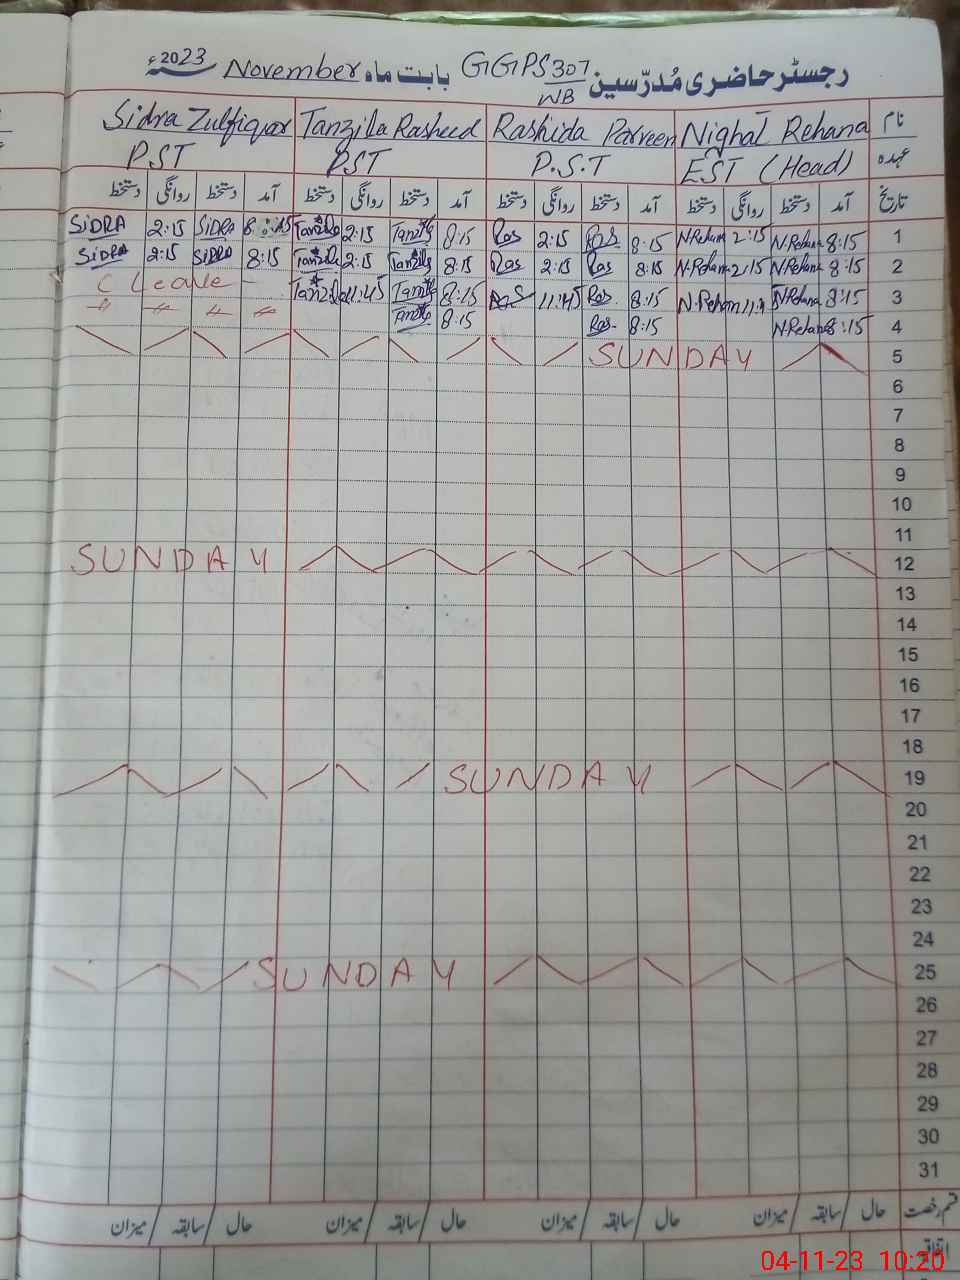 رجسٹر حاضری مُدرّسین GGPS 307/WB بابت ماہ November سنہ 2023ء
نام Nighat Rehana Rashida Parveen Tanzila Rasheed Sidra Zulfiqar
عہدہ EST (Head) P.S.T PST PST
تاریخ آمد دستخط روانگی دستخط آمد دستخط روانگی دستخط آمد دستخط روانگی دستخط آمد دستخط روانگی دستخط
1 8:15 N.Rehana 2:15 N.Rehana 8:15 Ras 2:15 Ras 8:15 Tanzila 2:15 Tanzila 8:15 SIDRA 2:15 SIDRA
2 8:15 N.Rehana 2:15 N.Rehana 8:15 Ras 2:15 Ras 8:15 Tanzila 2:15 Tanzila 8:15 SIDRA 2:15 SIDRA
3 8:15 N.Rehana N.Rehana 8:15 Ras 11:45 Ras 8:15 Tanzila 11:45 Tanzila C Leave
4 8:15 N.Rehana 8:15 Ras 8:15 Tanzila 〃 〃 〃 〃
5 SUNDAY
6
7
8
9
10
11
12 SUNDAY
13
14
15
16
17
18
19 SUNDAY
20
21
22
23
24
25 SUNDAY
26
27
28
29
30
31
قسم رخصت حال سابقہ میزان حال سابقہ میزان حال سابقہ میزان حال سابقہ میزان
اتفاقیہ
04-11-23 10:20